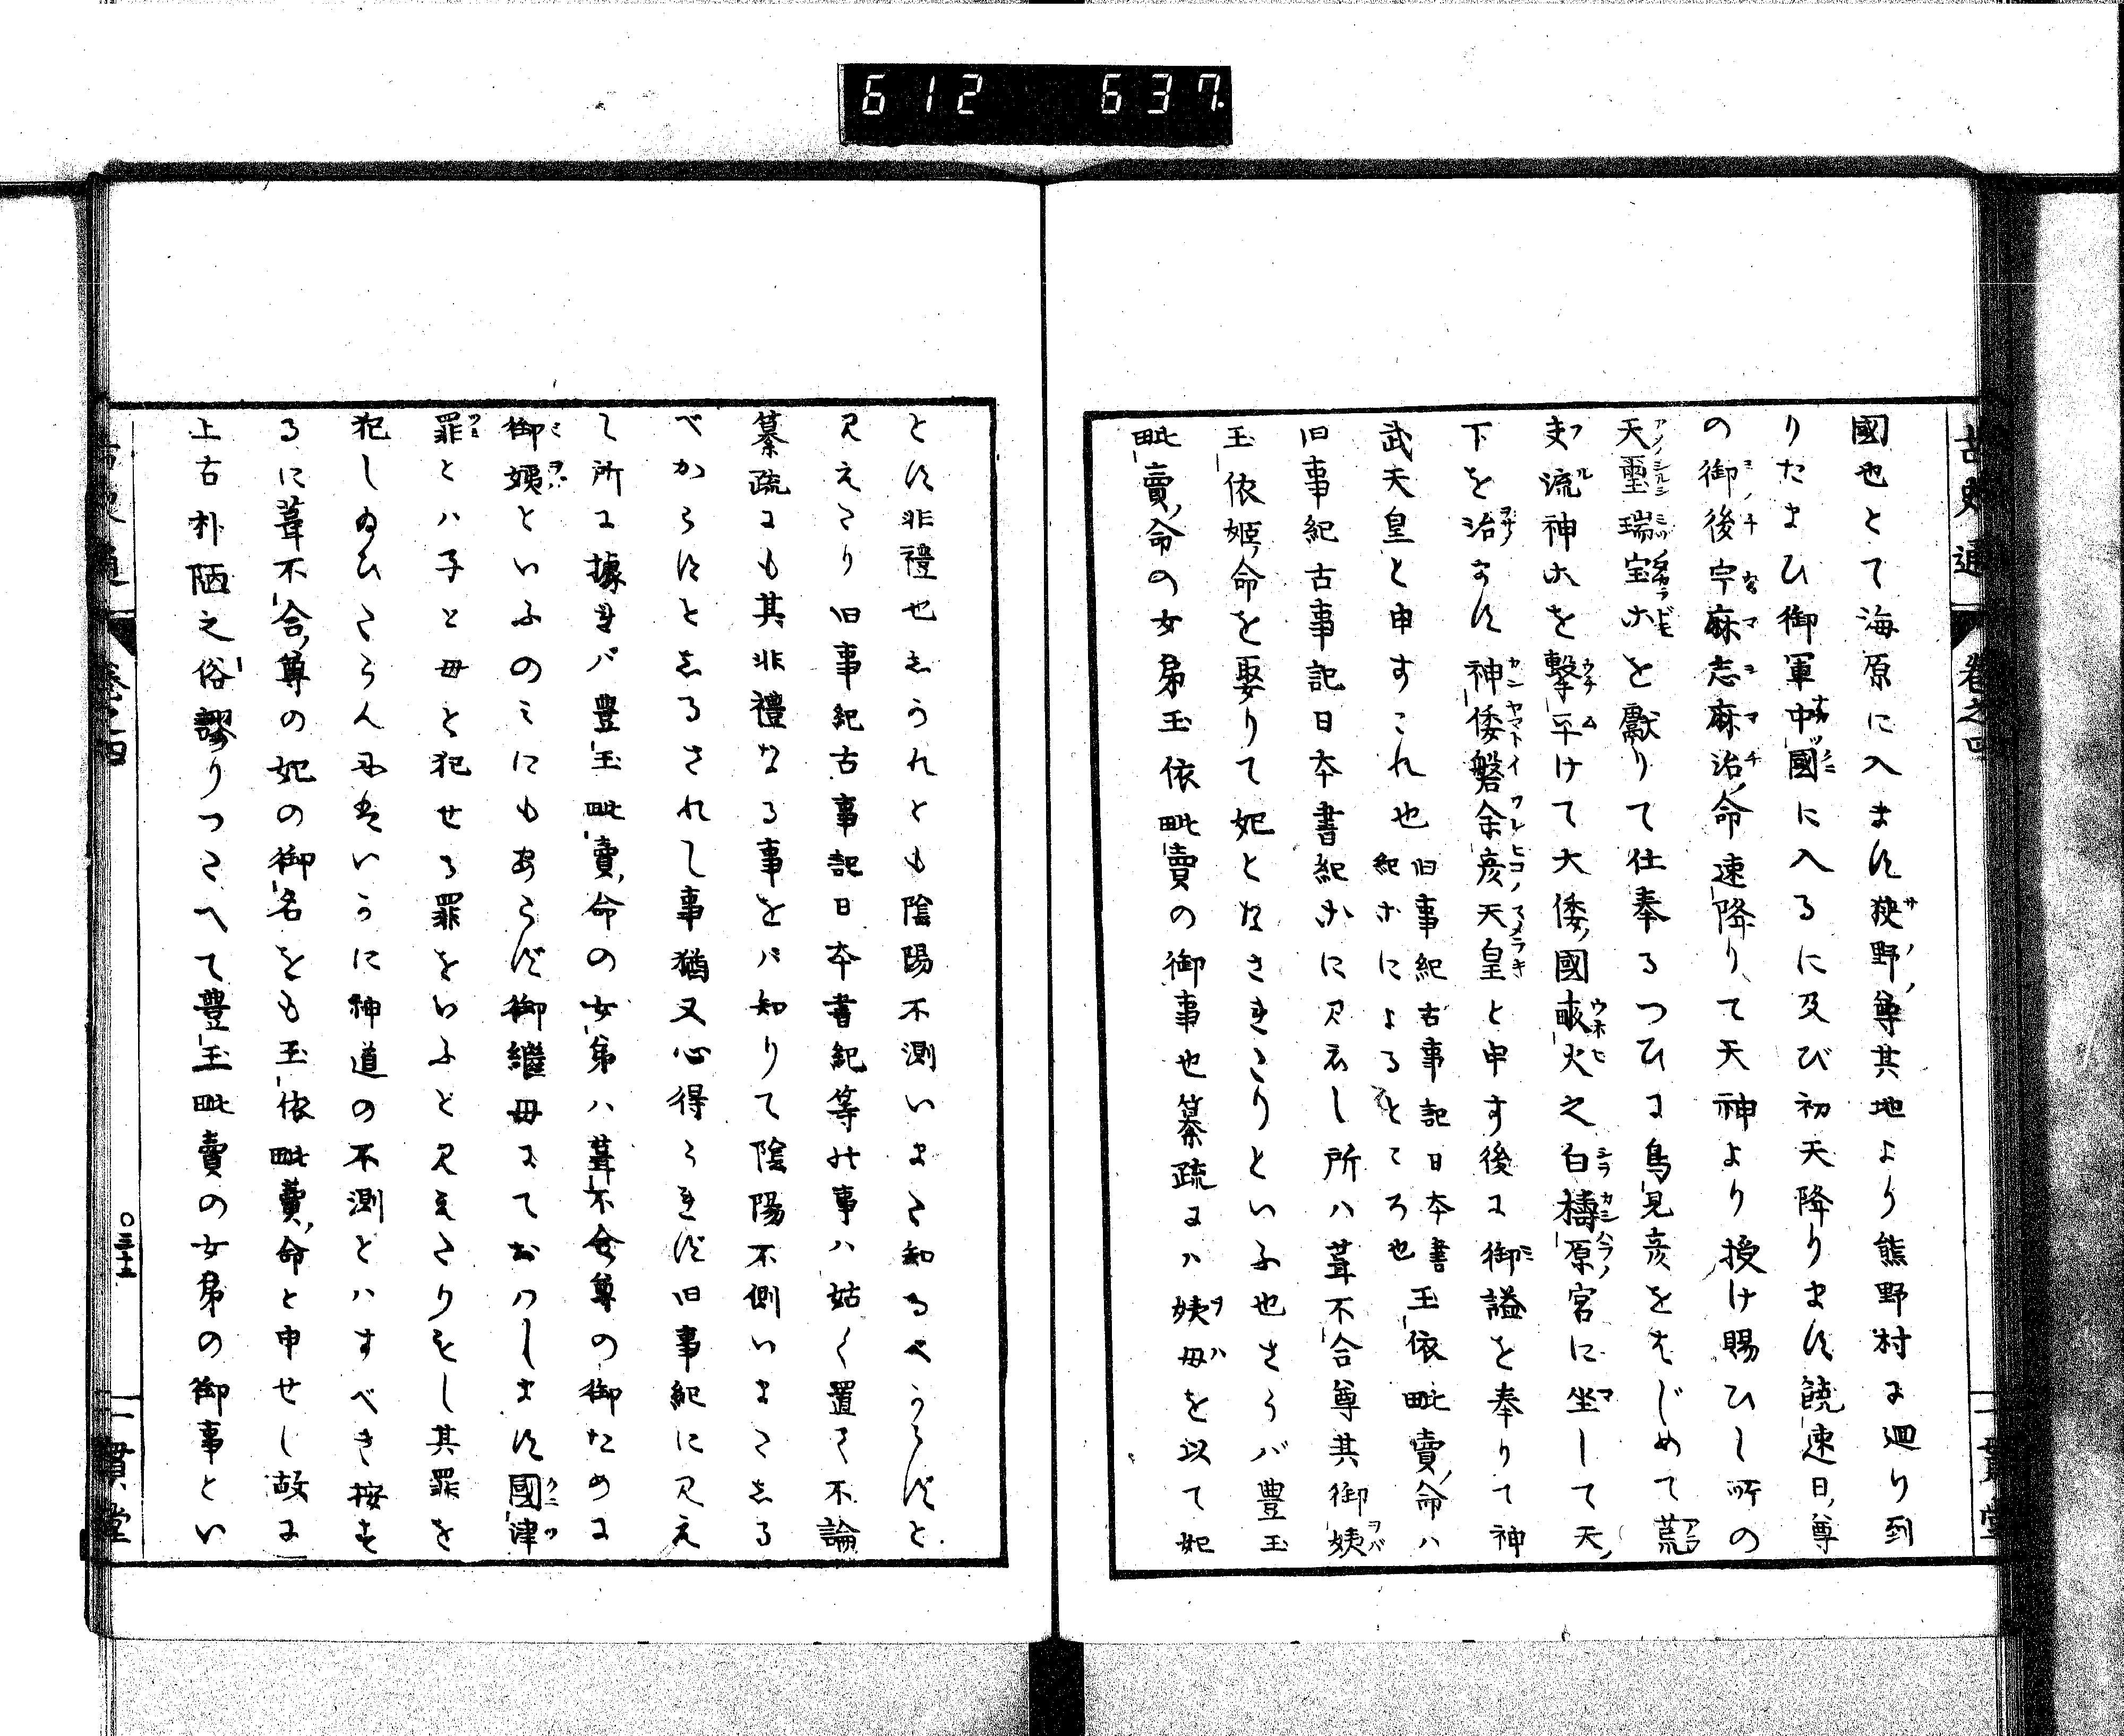 6 12 637.
古史通 卷之四 一貫堂
國也とて海原に入ます狹野尊其地より熊野村に廻り到
りたまひ御軍中國に入るに及び初天降ります饒速日尊
の御後宇麻志麻治命速降りて天神より授け賜ひし所の
天璽瑞宝等を獻りて仕奉るつひに鳥見彦をはじめて荒
吏流神等を撃平けて大倭國畝火之白檮原宮に坐して天
下を治ます神倭磐余彦天皇と申す後に御謚を奉りて神
武天皇と申すこれ也 旧事紀古事記日本書紀等によるところ也 玉依毗賣命ハ
旧事紀古事記日本書紀等に見えし所ハ葺不合尊其御姨
玉依姬命を娶りて妃となさきたりといふ也さらバ豊玉
毗賣命の女弟玉依毗賣の御事也纂疏にハ姨母を以て妃
とす非禮也しかれとも陰陽不測いまた知るべからずと
見えたり旧事紀古事記日本書紀等此事ハ姑く置て不論
纂疏にも其非禮なる事をバ知りて陰陽不側いまたしる
べからすとしるされし事猶又心得られず旧事紀に見え
し所に據れバ豊玉毗賣命の女弟ハ葺不合尊の御ために
御姨といふのミにもあらず御繼母にておハします國津
罪とハ子と母と犯せる罪をいふと見えたりもし其罪を
犯し給ひたらんにはいかに神道の不測とハすべき按す
るに葺不合尊の妃の御名をも玉依毗賣命と申せし故に
上古朴陋之俗謬りつたへて豊玉毗賣の女弟の御事とい
〇三十五
一貫堂